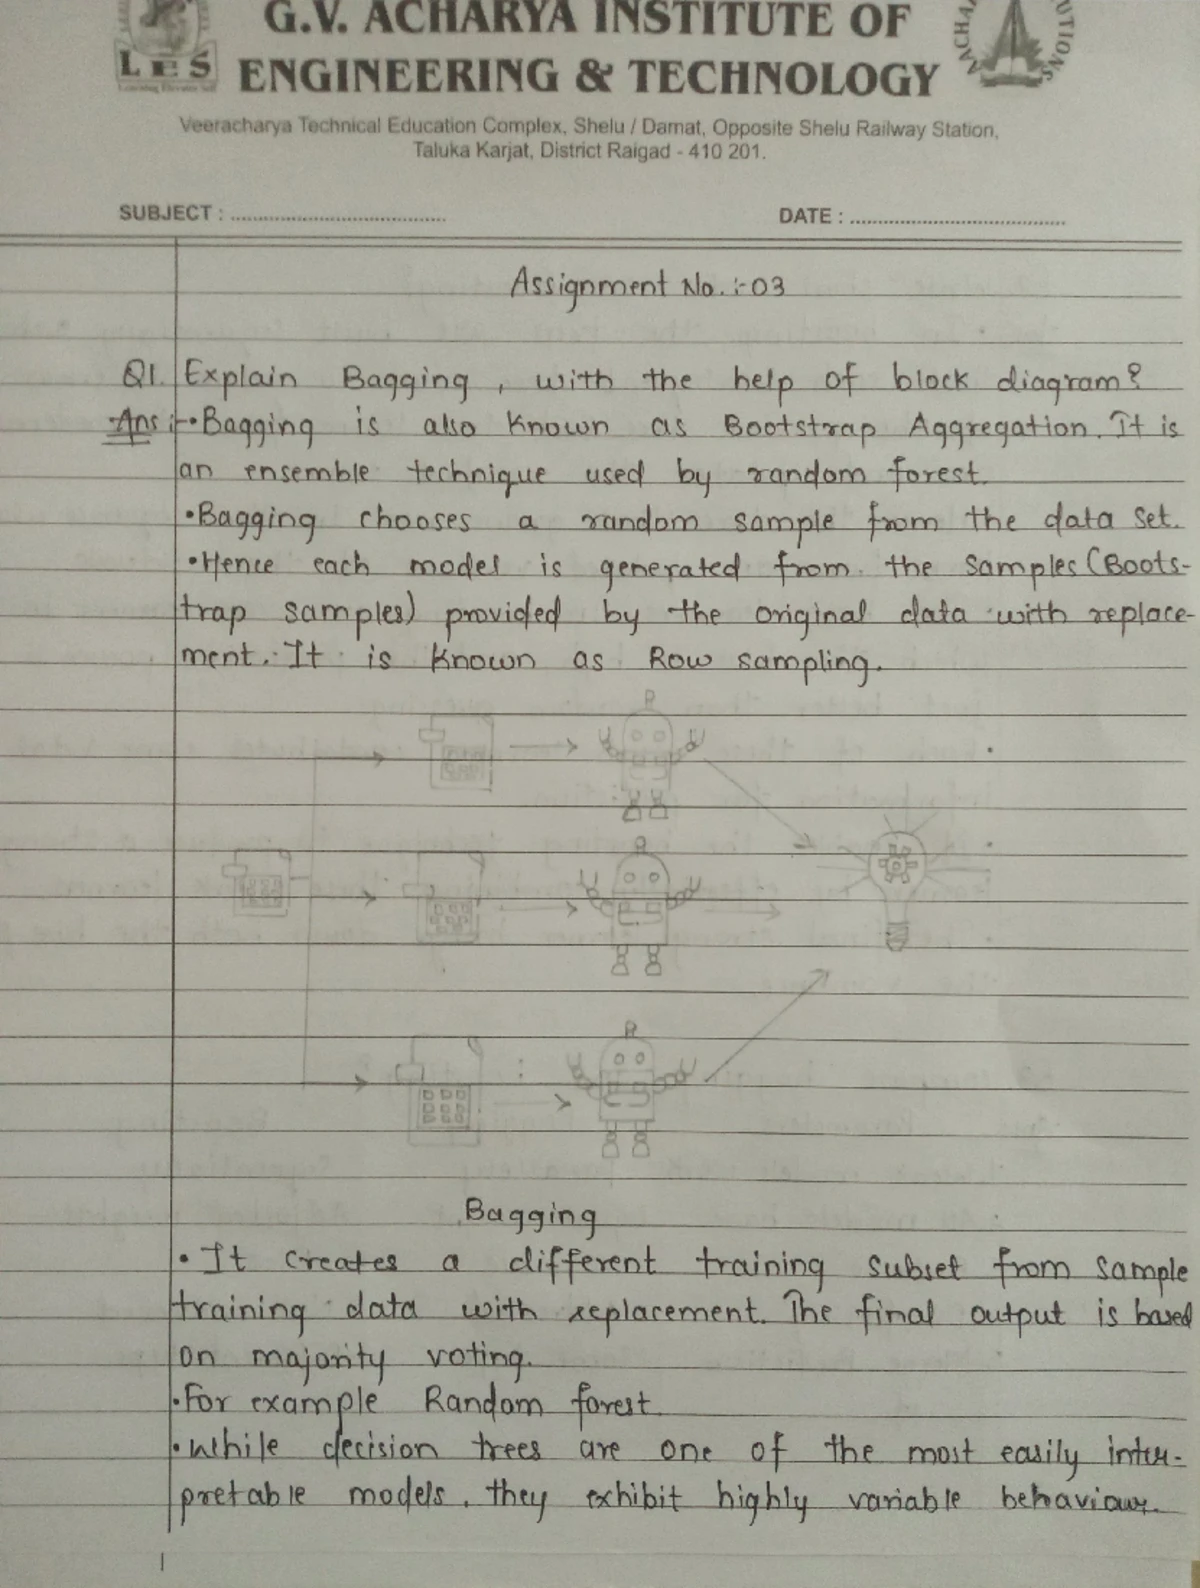 G.V. ACHARYA INSTITUTE OF
ENGINEERING & TECHNOLOGY
LES
Veeracharya Technical Education Complex, Shelu / Damat, Opposite Shelu Railway Station,
Taluka Karjat, District Raigad - 410 201.
SUBJECT : .....................................
DATE : .....................................
Assignment No. :- 03
Q1. Explain Bagging , with the help of block diagram?
Ans :- • Bagging is also known as Bootstrap Aggregation. It is
an ensemble technique used by random forest.
• Bagging chooses a random sample from the data set.
• Hence each model is generated from the samples (Boots-
trap samples) provided by the original data with replace-
ment. It is known as Row sampling.
Bagging
• It creates a different training subset from sample
training data with replacement. The final output is based
on majority voting.
• For example Random forest
• While decision trees are one of the most easily inter-
pretable models, they exhibit highly variable behaviour.